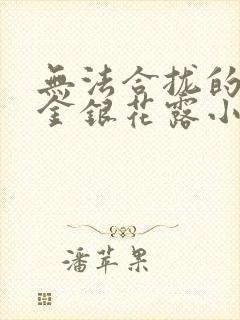 無法合拢的
金银花露小
潘苹果